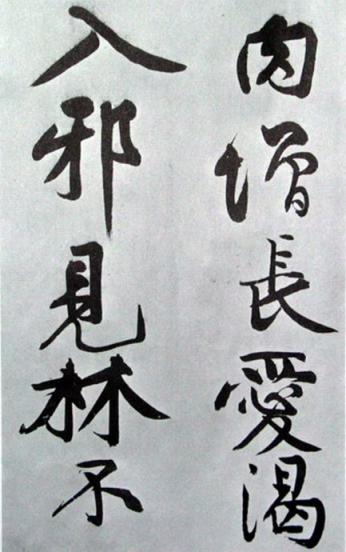 内增長愛渴
入邪見林不